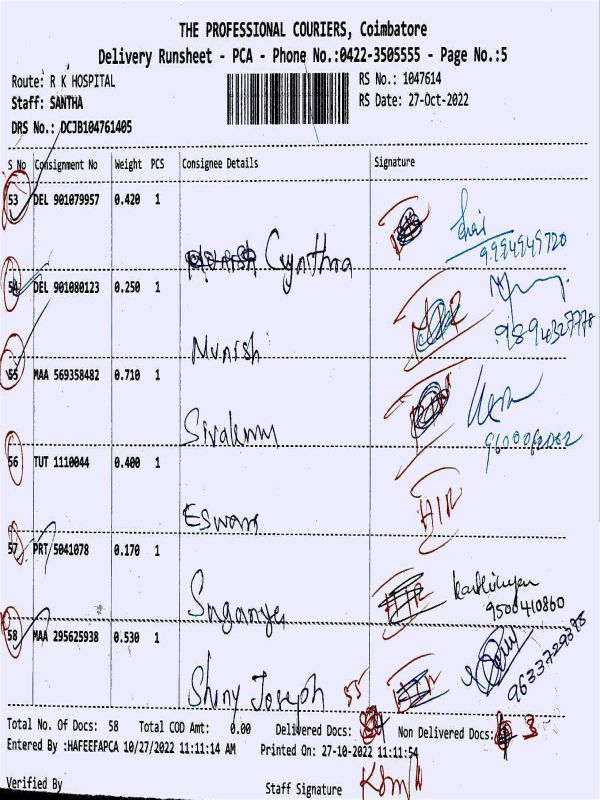 THE PROFESSIONAL COURIERS, Coimbatore
Delivery Runsheet - PCA - Phone No.:0422-3505555 - Page No.:5
Route: R K HOSPITAL RS No.: 1047614
Staff: SANTHA RS Date: 27-Oct-2022
DRS No.: DCJB104761405
S No Consignment No Weight PCS Consignee Details Signature
53 DEL 901079957 0.420 1
9994949720
Cynthia
54 DEL 901080123 0.250 1
9894327778
Munish
55 MAA 569358482 0.710 1
Sivakumar
9600062082
56 TUT 1110044 0.400 1
HIR
Eswari
57 PRT 5041078 0.170 1
Karthikeyan
9500410860
Suganya
58 MAA 295625938 0.530 1
9633729398
Shiny Joseph 55
Total No. Of Docs: 58 Total COD Amt: 0.00 Delivered Docs: Non Delivered Docs: 3
Entered By :HAFEEFAPCA 10/27/2022 11:11:14 AM Printed On: 27-10-2022 11:11:54
Verified By Staff Signature